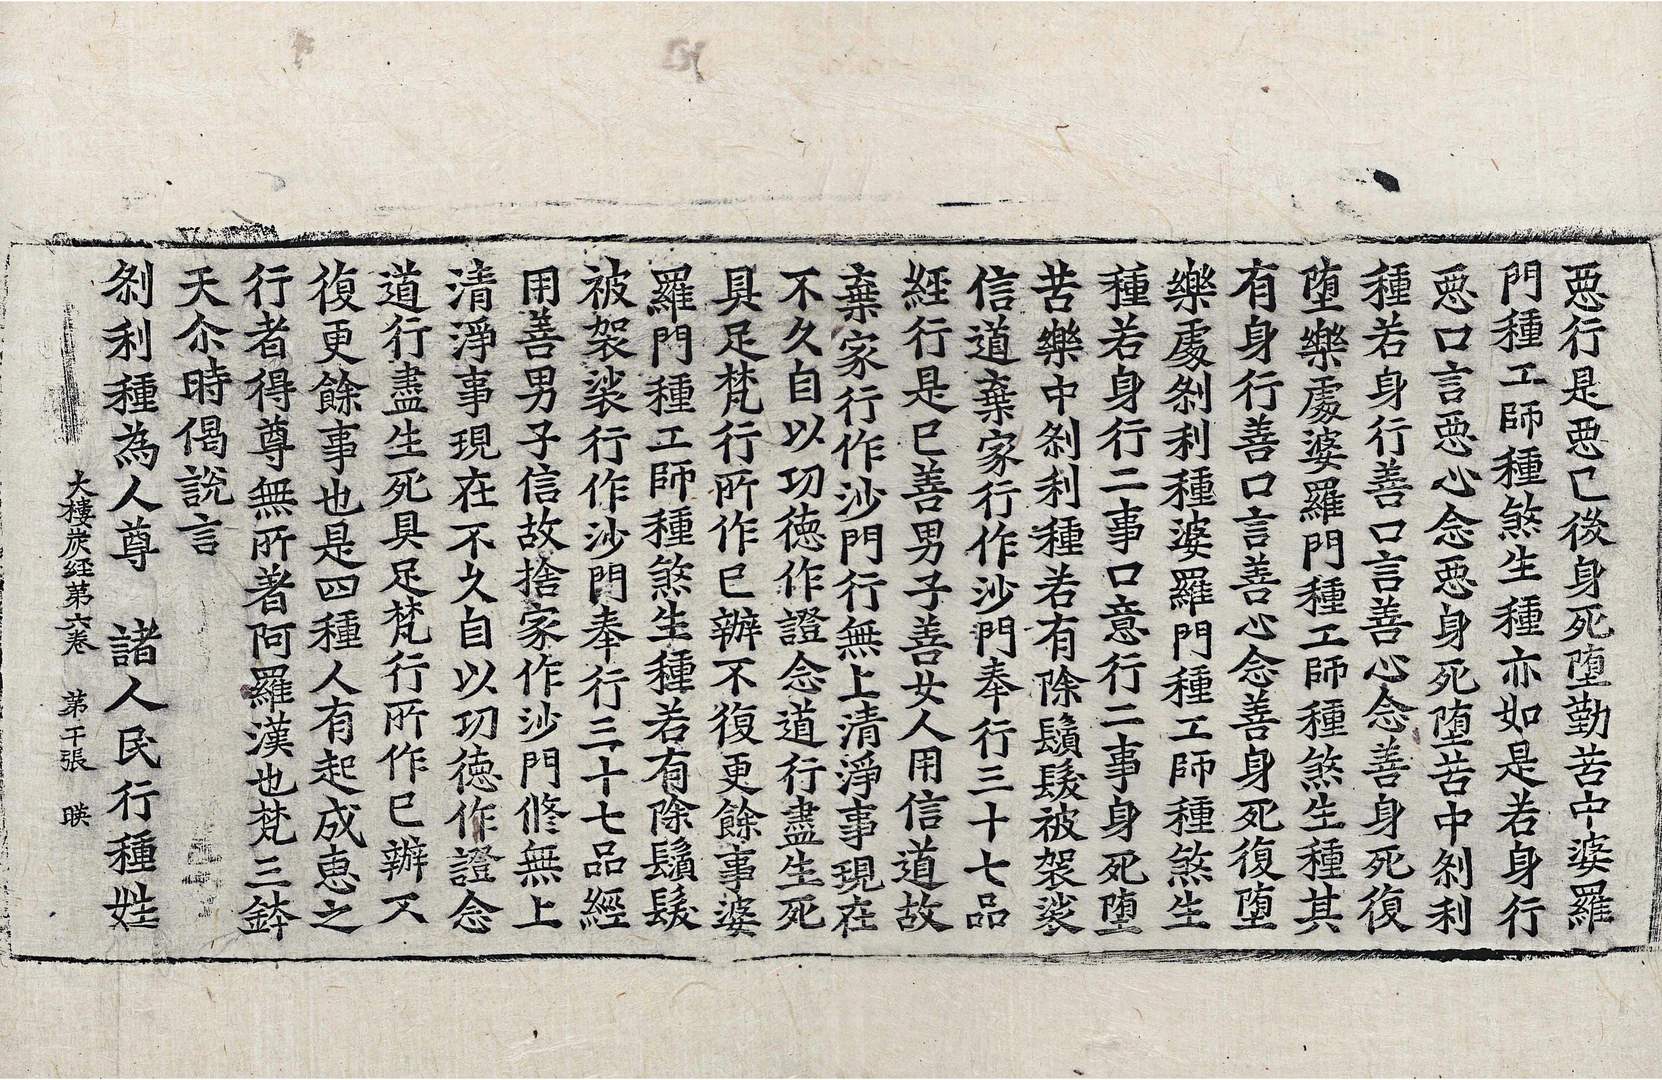 惡行是惡已後身死堕勤苦中婆羅
門種工師種煞生種亦如是若身行
惡口言惡心念惡身死堕苦中刹利
種若身行善口言善心念善身死復
堕樂處婆羅門種工師種煞生種其
有身行善口言善心念善身死復堕
樂處刹利種婆羅門種工師種煞生
種若身行二事口意行二事身死堕
苦樂中刹利種若有除鬚髮被袈裟
信道棄家行作沙門奉行三十七品
経行是已善男子善女人用信道故
棄家行作沙門行無上清淨事現在
不久自以㓛徳作證念道行盡生死
具足梵行所作已辦不復更餘事婆
羅門種工師種煞生種若有除鬚髮
被袈裟行作沙門奉行三十七品經
用善男子信故捨家作沙門修無上
清淨事現在不久自以㓛徳作證念
道行盡生死具足梵行所作已辦不
復更餘事也是四種人有起成恵之
行者得尊無所著阿羅漢也梵三鉢
天尒時偈說言
刹利種為人尊　諸人民行種姓
大樓炭経第六卷　第干張　暎